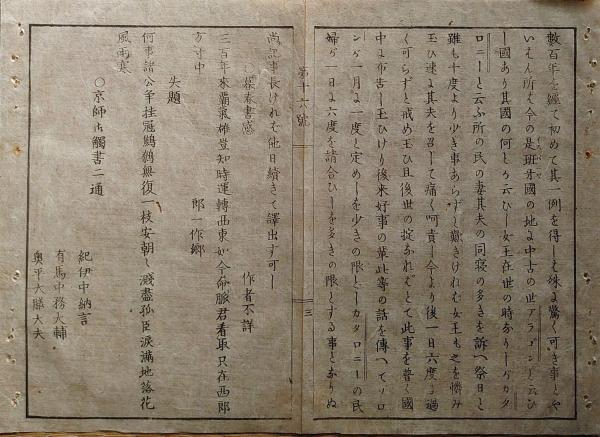 數百年を經て初めて其一例を得しは殊に驚く可き事とや
いえん所そ今の是班牙國の地に中古の世アラゴンと云ひ
し國あり其國の何とか云ひし女王在世の時なりしがカタ
ロニーと云ふ所の民の妻其夫の同寢の多きを訴へ祭日と
雖も十度より少き事あらずと歎きけれバ女王も之を憐み
玉ひ速に其夫を召して痛く呵責し今より後一日六度に過
く可らずと戒め玉ひ且後世の掟なれバとて此事を普く國
中に布告し玉ひけり後來好事の輩此等の話を傳へてソロ
ンが一月に一度と定めしを少きの限としカタロニーの民
婦が一日に六度を請合ひしを多きの限とする事となりぬ
第十六號
三
尚此事長けれバ他日續きて譯出す可し
暮春書感 作者不詳
三百年來霸氣雄豈知時運轉西東如今命脈君看取只在西郎
方寸中
失題 郎一作鄉
何事諸公爭挂冠鷦鷯無復一枝安朝々濺盡孤臣淚滿地落花
風雨寒
○京師御觸書二通
紀伊中納言
有馬中務大輔
奧平大膳大夫